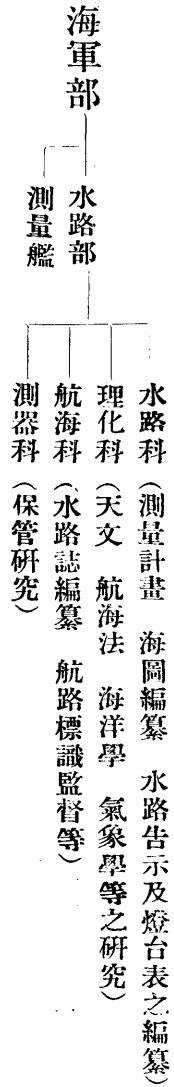 海軍部
水路部
測量艦
水路科(測量計畫 海圖編纂 水路告示及燈台表之編纂)
理化科(天文 航海法 海洋學 氣象學等之研究)
航海科(水路誌編纂 航路標識監督等)
測器科(保管研究)